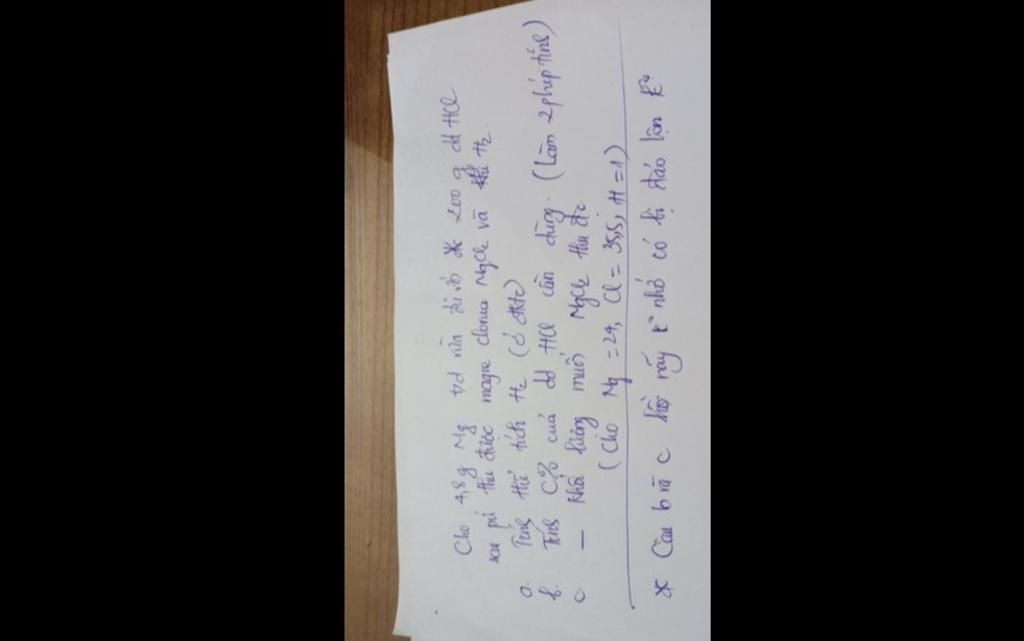 Cho 4,8g Mg t/d vừa đủ với 200 g dd HCl
sau pứ thu được magie clorua MgCl2 và khí H2.
a. Tính thể tích H2 (ở đktc)
b. Tính C% của dd HCl cần dùng. (Làm 2 phép tính)
c — khối lượng muối MgCl2 thu đc
(Cho Mg = 24, Cl = 35,5, H = 1)
* Câu b và c nhớ có bị đảo lộn